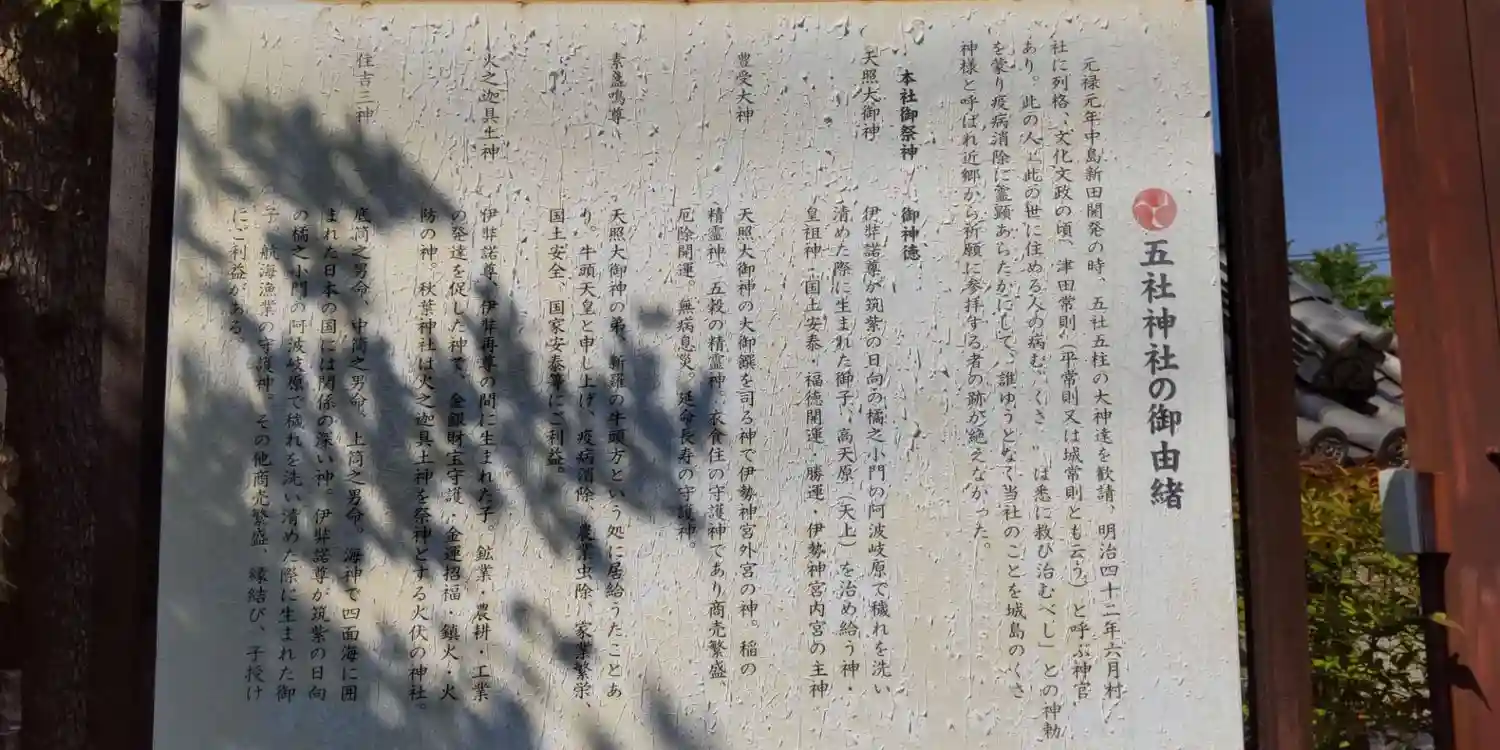 五社神社の御由緒
元禄元年中島新田開発の時、五社五柱の大神達を歓請、明治四十二年六月村
社に列格、文化文政の頃、津田常則(平常則又は城常則とも云う)と呼ぶ神官
あり。此の人「此の世に住める人の病む〝くさ〟は悉に救ひ治むべし」との神勅
を蒙り疫病消除に霊顕あらたかにして、誰ゆうとなく当社のことを城島のくさ
神様と呼ばれ近郷から祈願に参拝する者の跡が絶えなかった。
本社御祭神 御神徳
天照大御神 伊弉諾尊が筑紫の日向の橘之小門の阿波岐原で穢れを洗い
清めた際に生まれた御子、高天原(天上)を治め給う神・
皇祖神・国土安泰・福徳開運・勝運・伊勢神宮内宮の主神
豊受大神 天照大御神の大御饌を司る神で伊勢神宮外宮の神。稲の
精霊神、五穀の精霊神。衣食住の守護神であり商売繁盛、
厄除開運。無病息災。延命長寿の守護神。
素盞鳴尊 天照大御神の弟、新羅の牛頭方という処に居給うたことあ
り。牛頭天皇と申し上げ、疫病消除、農業虫除、家業繁栄、
国土安全、国家安泰等にご利益。
火之迦具土神 伊弉諾尊、伊弉再尊の間に生まれた子。鉱業・農耕・工業
の発達を促した神で、金銀財宝守護・金運招福・鎮火・火
防の神。秋葉神社は火之迦具土神を祭神とする火伏の神社。
住吉三神 底筒之男命、中筒之男命、上筒之男命。海神で四面海に囲
まれた日本の国には関係の深い神。伊弉諾尊が筑紫の日向
の橘之小門の阿波岐原で穢れを洗い清めた際に生まれた御
子、航海漁業の守護神。その他商売繁盛、縁結び、子授け
にご利益がある。